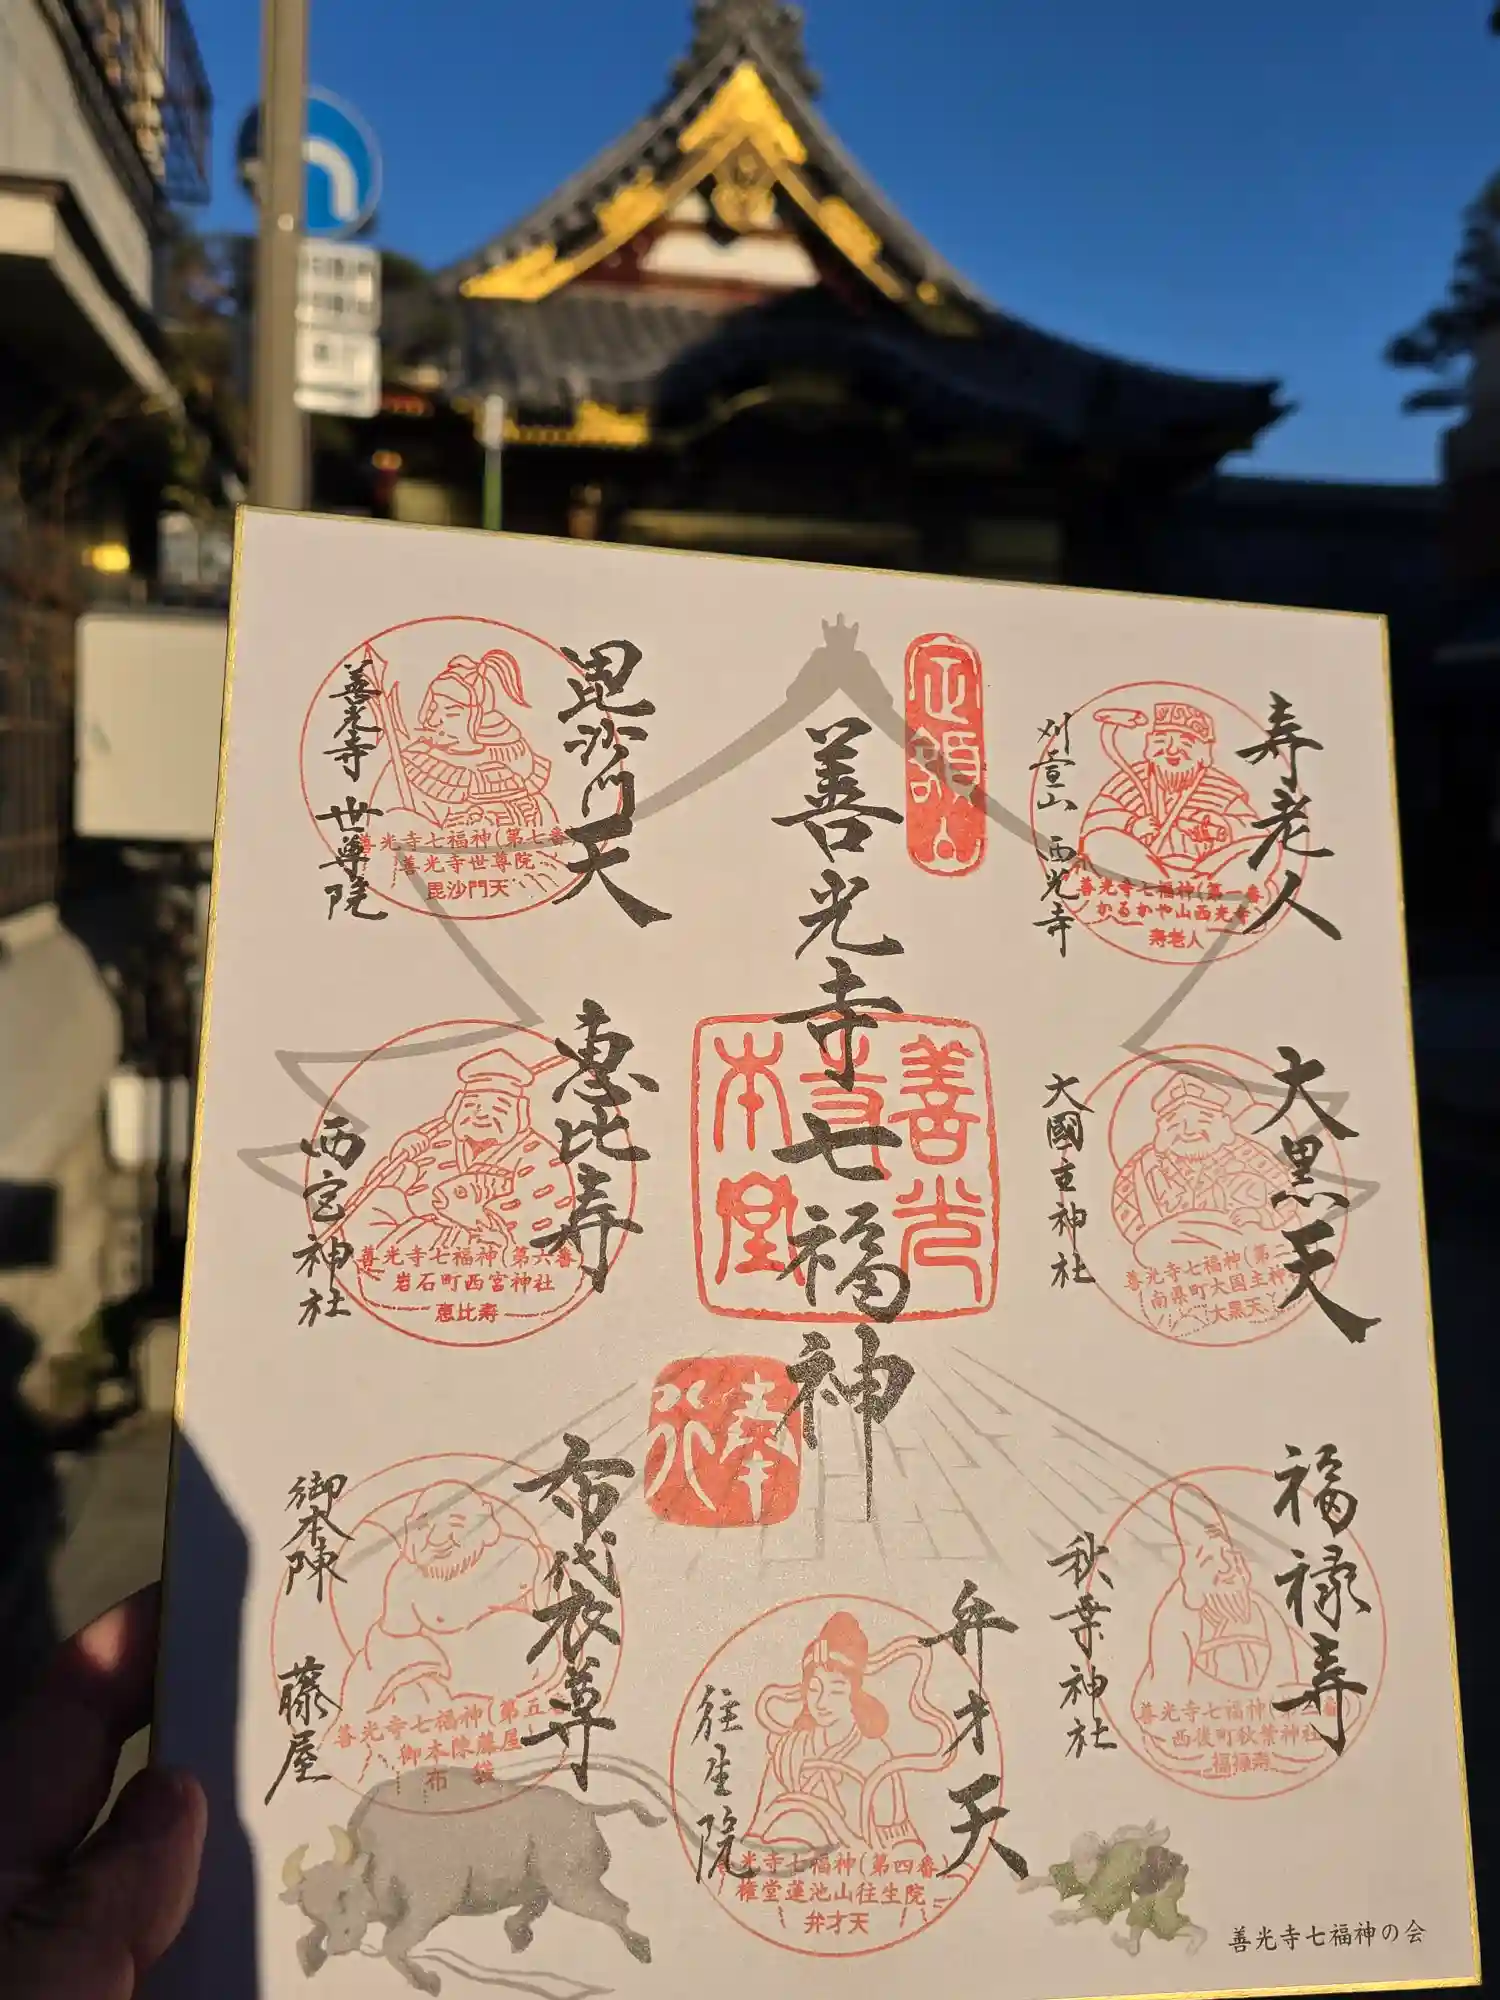 善光寺七福神
定額山
善光寺本堂
奉行
寿老人
刈萱山 西光寺
善光寺七福神(第一番)
かるかや山西光寺
寿老人
大黒天
大國主神社
善光寺七福神(第二
南県町大国主神
大黒天
福禄寿
秋葉神社
善光寺七福神(第三番)
西後町秋葉神社
福禄寿
弁才天
往生院
光寺七福神(第四番)
権堂蓮池山往生院
弁才天
布代衣尊
御本陣 藤屋
善光寺七福神(第五番
御本陳藤屋
布袋
恵比寿
西宮神社
善光寺七福神(第六番)
岩石町西宮神社
恵比寿
毘沙門天
善光寺 世尊院
善光寺七福神(第七番)
善光寺世尊院
毘沙門天
善光寺七福神の会